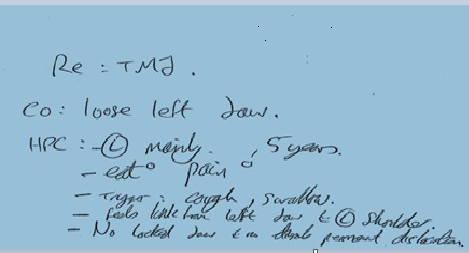 Re: TMJ.
Co: loose left Jaw.
HPC: - Ⓛ mainly, 5 years.
- eat° pain°
- Trigger: cough, swallow.
- feels link from left Jaw t Ⓛ Shoulder
- No locked Jaw t no permanent dislocation.